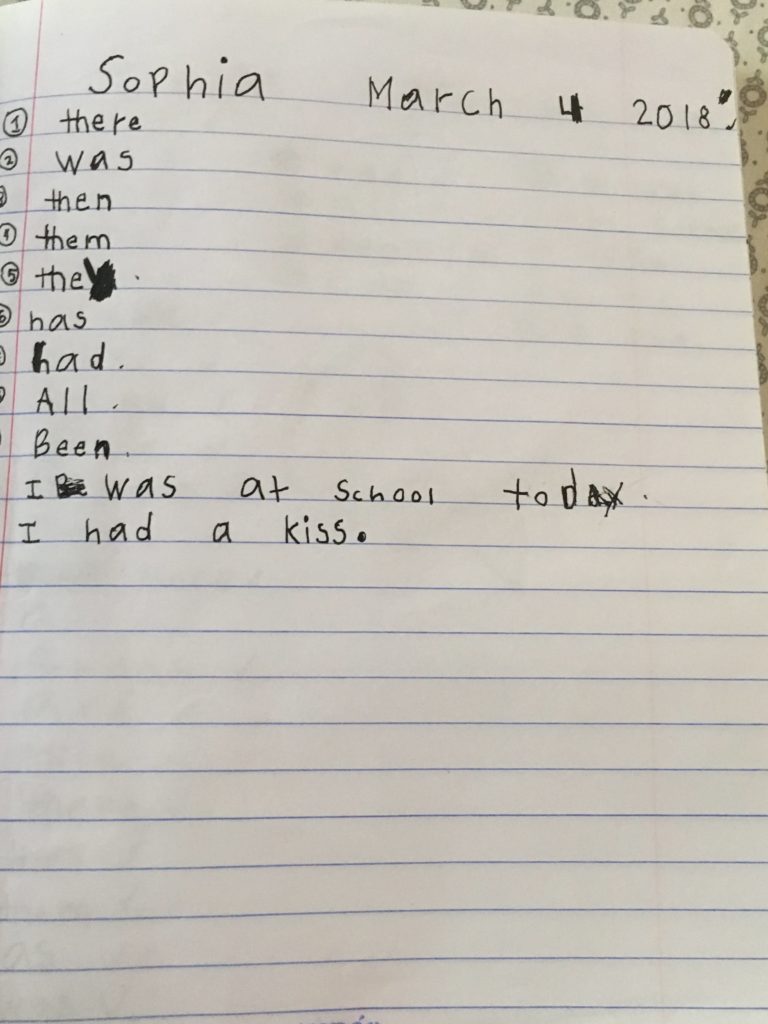 Sophia March 4 2018
① there
② was
then
them
⑤ they.
has
had.
All.
Been.
I was at school today.
I had a kiss.